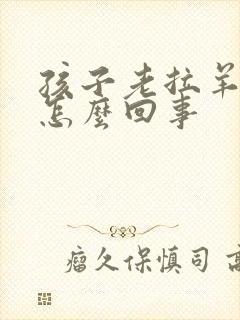 孩子老拉羊
怎麼回事
瘤久保慎司 高